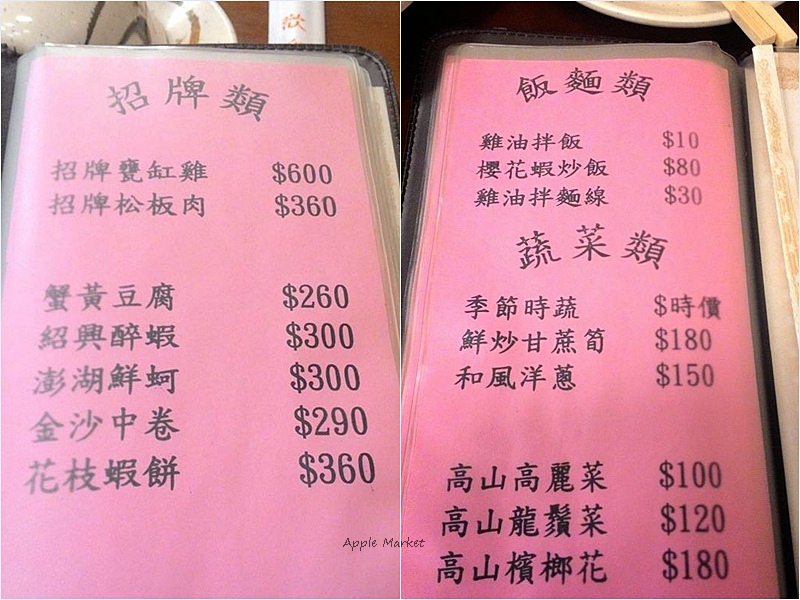 招牌類
招牌甕缸雞 $600
招牌松板肉 $360
蟹黃豆腐 $260
紹興醉蝦 $300
澎湖鮮蚵 $300
金沙中卷 $290
花枝蝦餅 $360
Apple Market
飯麵類
雞油拌飯 $10
櫻花蝦炒飯 $80
雞油拌麵線 $30
蔬菜類
季節時蔬 $時價
鮮炒甘蔗筍 $180
和風洋蔥 $150
高山高麗菜 $100
高山龍鬚菜 $120
高山檳榔花 $180